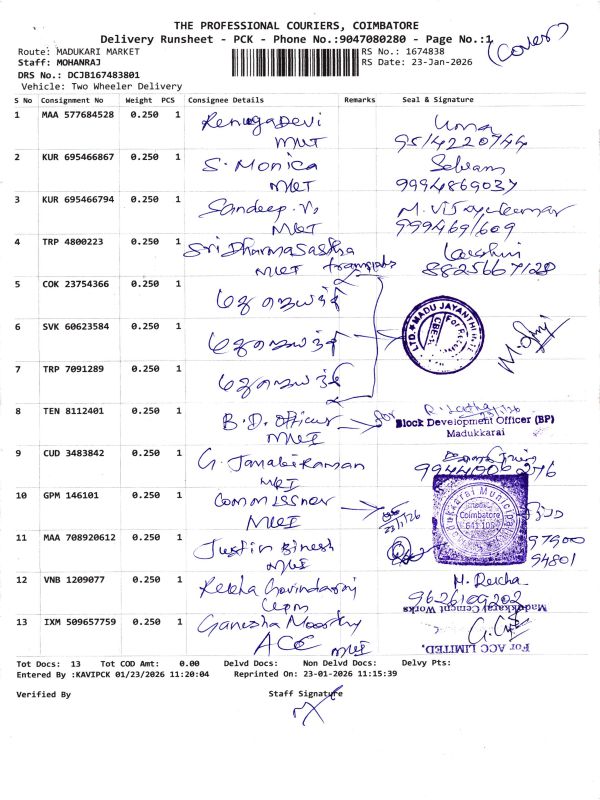 THE PROFESSIONAL COURIERS, COIMBATORE
Delivery Runsheet - PCK - Phone No.:9047080280 - Page No.:1
(Cover)
Route: MADUKARI MARKET RS No.: 1674838
Staff: MOHANRAJ RS Date: 23-Jan-2026
DRS No.: DCJB167483801
Vehicle: Two Wheeler Delivery
S No Consignment No Weight PCS Consignee Details Remarks Seal & Signature
1 MAA 577684528 0.250 1 RenugaDevi Uma
MKT 9514220744
2 KUR 695466867 0.250 1 S. Monica
MKT 9994869037
3 KUR 695466794 0.250 1 Sandeep. V. M. Vijayakumar
MKT 9994691609
4 TRP 4800223 0.250 1 Sri Dharmasastha Lakshmi
MKT 8825667128
5 COK 23754366 0.250 1
6 SVK 60623584 0.250 1
LTD. * MADU JAYANTHI
7 TRP 7091289 0.250 1
8 TEN 8112401 0.250 1 B.D. Officer for
MKT Block Development Officer (BP)
Madukkarai
9 CUD 3483842 0.250 1 G. Janakiraman
MKT
10 GPM 146101 0.250 1 Commissner
MKT 23/1/26
Coimbatore
641 105
11 MAA 708920612 0.250 1 Justin Binesh 97900
MKT 94801
12 VNB 1209077 0.250 1 Rekha Govindaraj M. Rekha
9626109202
Madukkarai Cement Works
13 IXM 509657759 0.250 1 Ganesha Moorthy
ACC MKT For ACC LIMITED,
Tot Docs: 13 Tot COD Amt: 0.00 Delvd Docs: Non Delvd Docs: Delvy Pts:
Entered By :KAVIPCK 01/23/2026 11:20:04 Reprinted On: 23-01-2026 11:15:39
Verified By Staff Signature